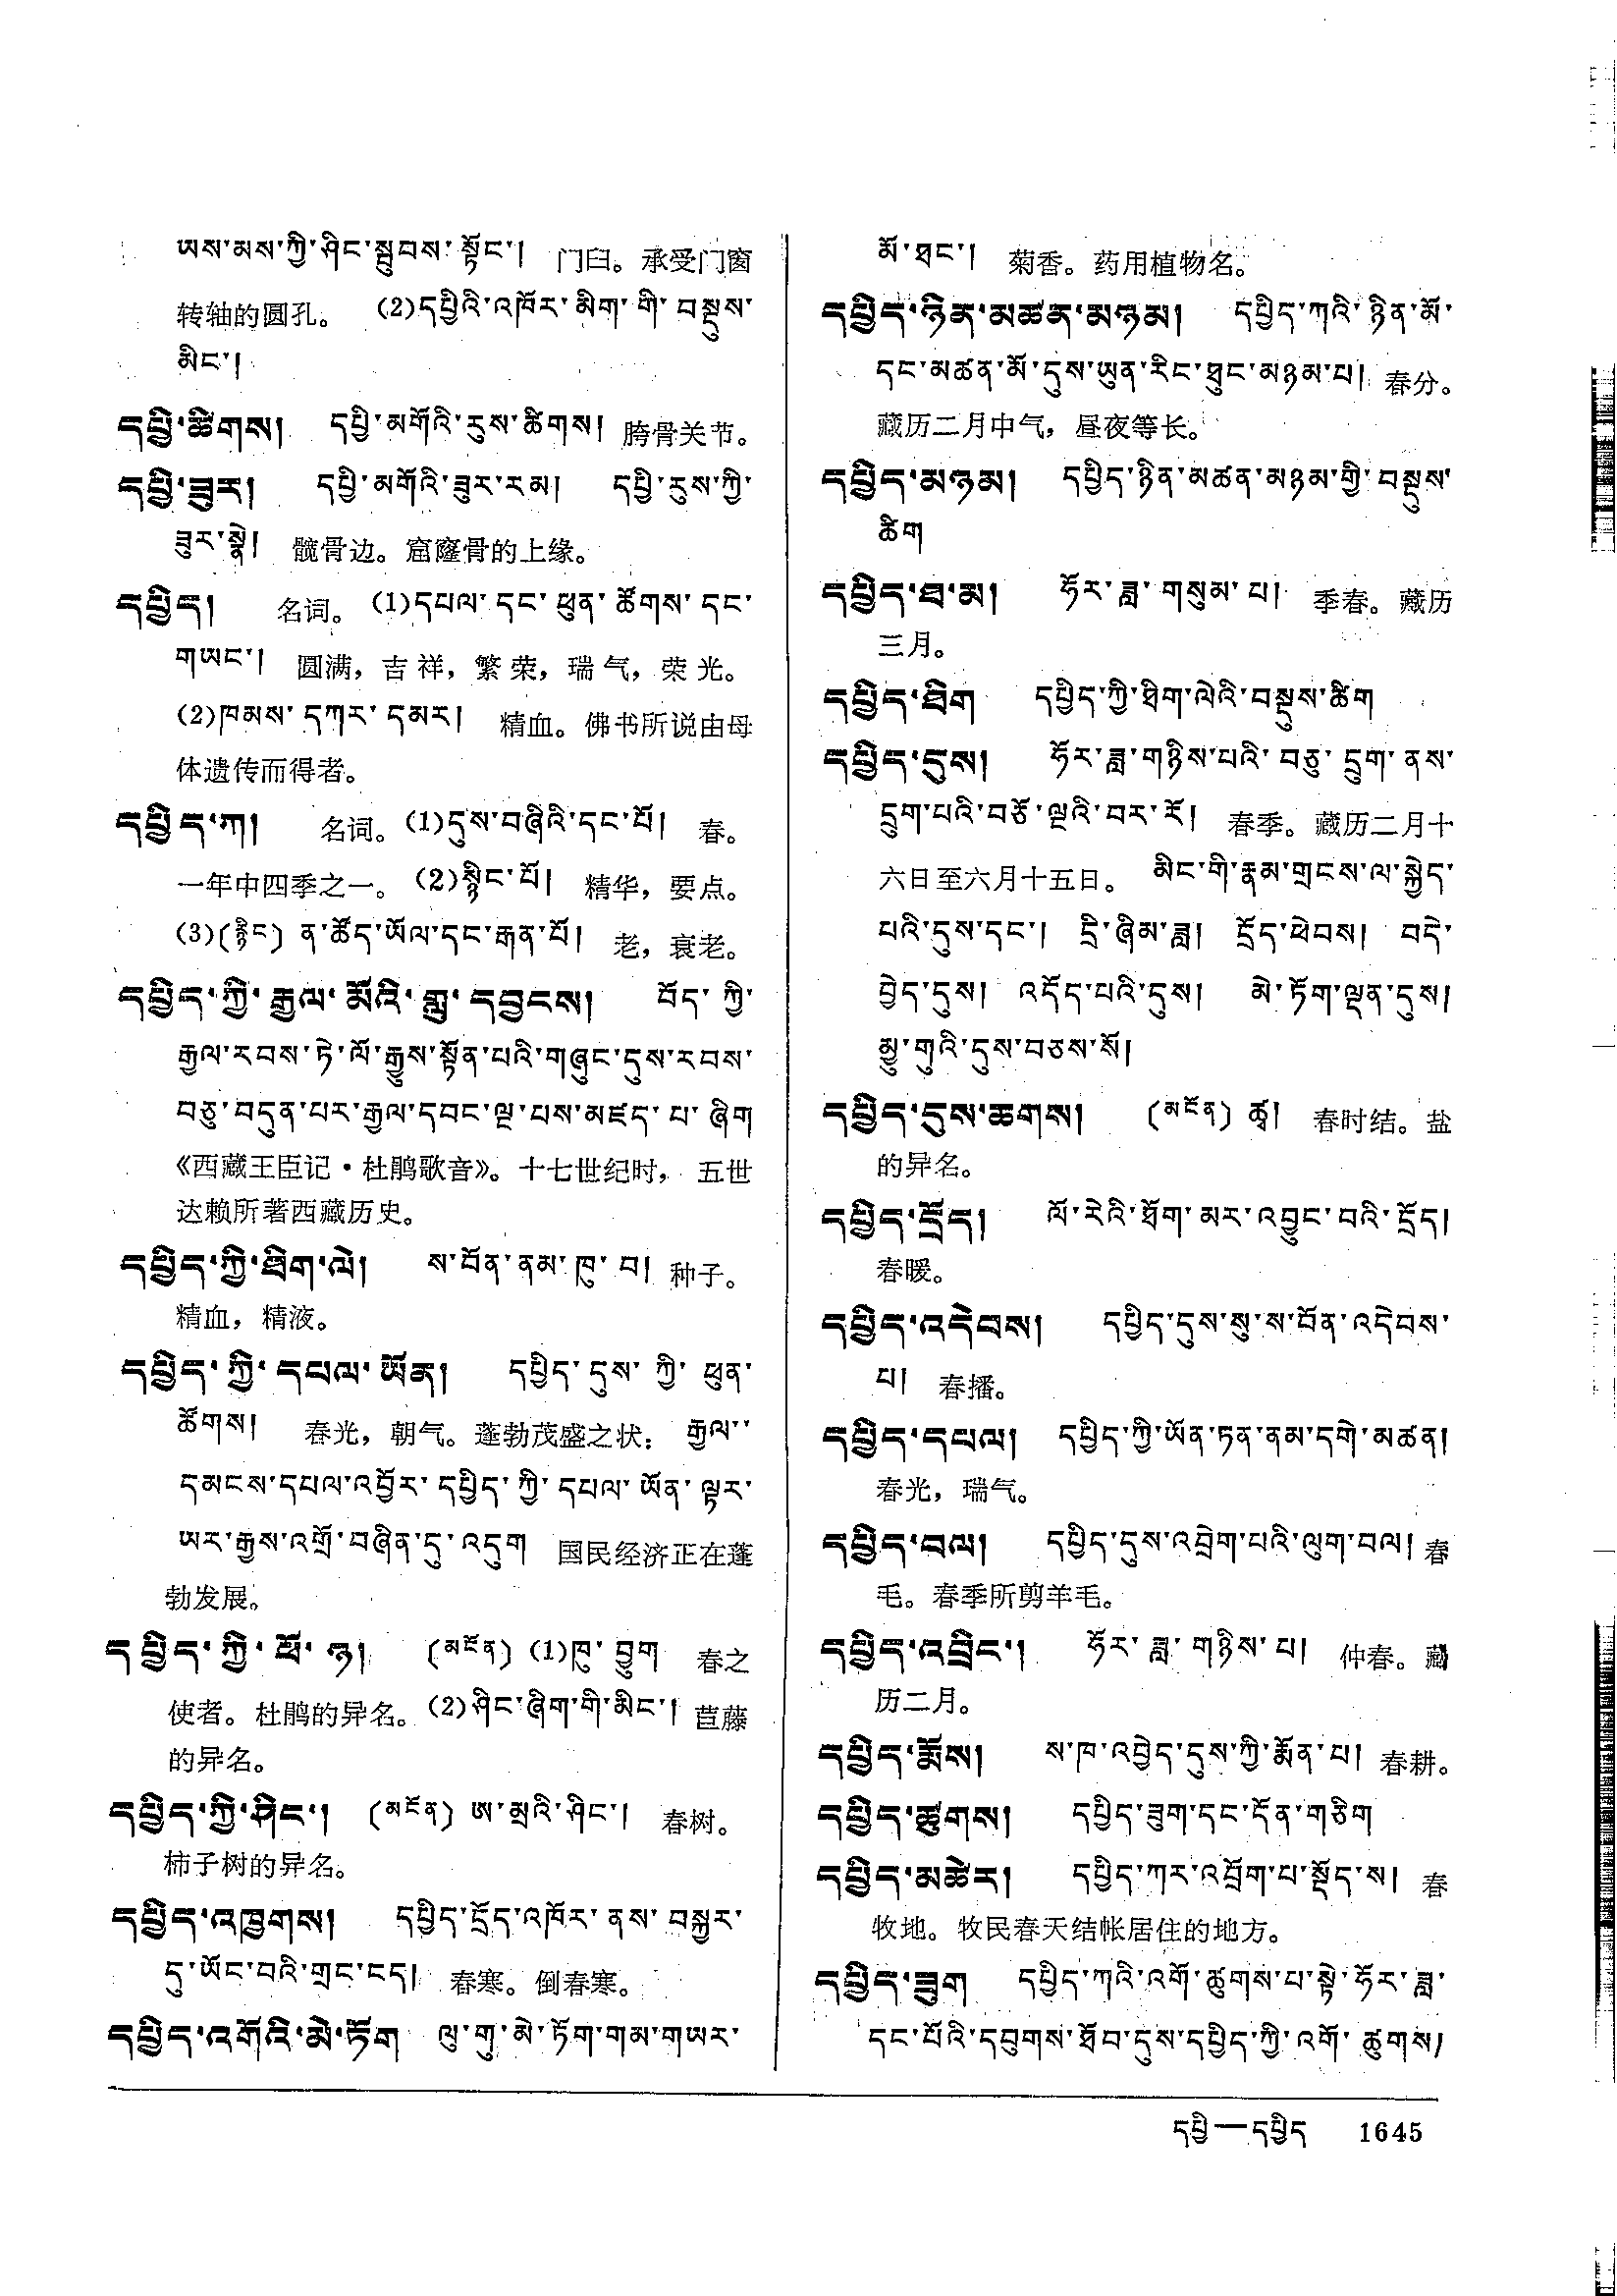 ཡས་མས་ཀྱི་ཤིང་སྦུབས་སྟོང་། 门臼。承受门窗
转轴的圆孔。 (2)དཔྱིའི་འཁོར་མིག་གི་བསྡུས་
མིང་།
དཔྱི་ཚིགས། དཔྱི་མགོའི་རུས་ཚིགས། 胯骨关节。
དཔྱི་ཟུར། དཔྱི་མགོའི་ཟུར་རམ། དཔྱི་རུས་ཀྱི་
ཟུར་སྣེ། 髋骨边。窟窿骨的上缘。
དཔྱིད། 名词。(1)དཔལ་དང་ཕུན་ཚོགས་དང་
གཡང་། 圆满，吉祥，繁荣，瑞气，荣光。
(2)ཁམས་དཀར་དམར། 精血。佛书所说由母
体遗传而得者。
དཔྱིད་ཀ། 名词。(1)དུས་བཞིའི་དང་པོ། 春。
一年中四季之一。(2)སྙིང་པོ། 精华，要点。
(3)(རྙིང) ན་ཚོད་ཡོལ་དང་རྒན་པོ། 老，衰老。
དཔྱིད་ཀྱི་རྒྱལ་མོའི་གླུ་དབྱངས། བོད་ཀྱི་
རྒྱལ་རབས་ཏེ་ལོ་རྒྱུས་སྟོན་པའི་གཞུང་དུས་རབས་
བཅུ་བདུན་པར་རྒྱལ་དབང་ལྔ་པས་མཛད་པ་ཞིག
《西藏王臣记·杜鹃歌音》。十七世纪时，五世
达赖所著西藏历史。
དཔྱིད་ཀྱི་ཐིག་ལེ། ས་བོན་ནམ་ཁུ་བ། 种子。
精血，精液。
དཔྱིད་ཀྱི་དཔལ་ཡོན། དཔྱིད་དུས་ཀྱི་ཕུན་
ཚོགས། 春光，朝气。蓬勃茂盛之状： རྒྱལ་
དམངས་དཔལ་འབྱོར་དཔྱིད་ཀྱི་དཔལ་ཡོན་ལྟར་
ཡར་རྒྱས་འགྲོ་བཞིན་དུ་འདུག 国民经济正在蓬
勃发展。
དཔྱིད་ཀྱི་ཕོ་ཉ། (མངོན) (1)ཁུ་བྱུག 春之
使者。杜鹃的异名。(2)ཤིང་ཞིག་གི་མིང་། 苣藤
的异名。
དཔྱིད་ཀྱི་ཤིང་། (མངོན) ཨ་མྲའི་ཤིང་། 春树。
柿子树的异名。
དཔྱིད་འཁྱགས། དཔྱིད་དྲོད་འཁོར་ནས་བསྐྱར་
དུ་ཡོང་བའི་གྲང་ངད། 春寒。倒春寒。
དཔྱིད་འགོའི་མེ་ཏོག ལུ་གུ་མེ་ཏོག་གམ་གཡར་
མོ་ཐང་། 菊香。药用植物名。
དཔྱིད་ཉིན་མཚན་མཉམ། དཔྱིད་ཀའི་ཉིན་མོ་
དང་མཚན་མོ་དུས་ཡུན་རིང་ཐུང་མཉམ་པ། 春分。
藏历二月中气，昼夜等长。
དཔྱིད་མཉམ། དཔྱིད་ཉིན་མཚན་མཉམ་གྱི་བསྡུས་
ཚིག
དཔྱིད་ཐ་མ། ཧོར་ཟླ་གསུམ་པ། 季春。藏历
三月。
དཔྱིད་ཐིག དཔྱིད་ཀྱི་ཐིག་ལེའི་བསྡུས་ཚིག
དཔྱིད་དུས། ཧོར་ཟླ་གཉིས་པའི་བཅུ་དྲུག་ནས་
དྲུག་པའི་བཅོ་ལྔའི་བར་རོ། 春季。藏历二月十
六日至六月十五日。 མིང་གི་རྣམ་གྲངས་ལ་སྐྱེད་
པའི་དུས་དང་། དྲི་ཞིམ་ཟླ། དྲོད་ཕེབས། བདེ་
བྱེད་དུས། འདོད་པའི་དུས། མེ་ཏོག་ལྡན་དུས།
མྱུ་གུའི་དུས་བཅས་སོ།
དཔྱིད་དུས་ཆགས། (མངོན) ཚྭ། 春时结。盐
的异名。
དཔྱིད་དྲོད། ལོ་རེའི་ཐོག་མར་འབྱུང་བའི་དྲོད།
春暖。
དཔྱིད་འདེབས། དཔྱིད་དུས་སུ་ས་བོན་འདེབས་
པ། 春播。
དཔྱིད་དཔལ། དཔྱིད་ཀྱི་ཡོན་ཏན་ནམ་དགེ་མཚན།
春光，瑞气。
དཔྱིད་བལ། དཔྱིད་དུས་འབྲེག་པའི་ལུག་བལ། 春
毛。春季所剪羊毛。
དཔྱིད་འབྲིང་། ཧོར་ཟླ་གཉིས་པ། 仲春。藏
历二月。
དཔྱིད་རྨོས། ས་ཁ་འབྱེད་དུས་ཀྱི་རྨོན་པ། 春耕。
དཔྱིད་ཚུགས། དཔྱིད་ཟུག་དང་དོན་གཅིག
དཔྱིད་མཚེར། དཔྱིད་ཀར་འབྲོག་པ་སྡོད་ས། 春
牧地。牧民春天结帐居住的地方。
དཔྱིད་ཟུག དཔྱིད་ཀའི་འགོ་ཚུགས་པ་སྟེ་ཧོར་ཟླ་
དང་པོའི་དབུགས་ཐོབ་དུས་དཔྱིད་ཀྱི་འགོ་ཚུགས།
དཔྱི—དཔྱིད 1645